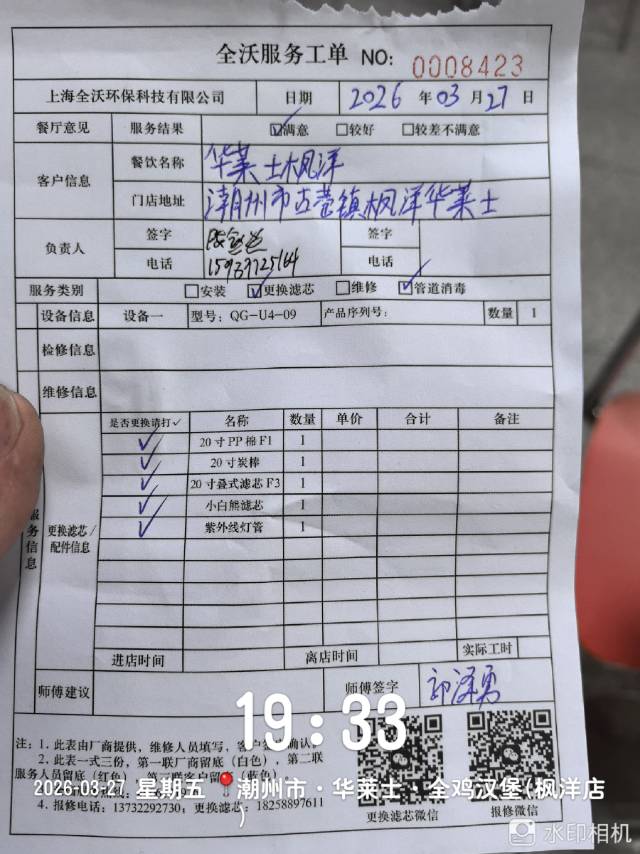 全沃服务工单 NO: 0008423
上海全沃环保科技有限公司 日期 2026 年 03 月 27 日
餐厅意见 服务结果 ☑满意 □较好 □较差不满意
客户信息 餐饮名称 华莱士枫洋
门店地址 潮州市古巷镇枫洋华莱士
负责人 签字 签字
电话 电话
服务类别 □安装 ☑更换滤芯 □维修 ☑管道消毒
服务信息
设备信息 设备一 型号: QG-U4-09 产品序列号: 数量 1
检修信息
维修信息
更换滤芯/配件信息
是否更换请打✓ 名称 数量 单价 合计 备注
✓ 20寸PP棉F1 1
✓ 20寸炭棒 1
✓ 20寸叠式滤芯F3 1
✓ 小白熊滤芯 1
✓ 紫外线灯管 1
进店时间 离店时间 实际工时
师傅建议 师傅签字
19:33
注: 1. 此表由厂商提供, 维修人员填写, 客户
2. 此表一式三份, 第一联厂商留底(白色), 第二联
服务人员留底(红色), 第三联客户留底(蓝色)。
2026-03-27 星期五 潮州市·华莱士·全鸡汉堡(枫洋店)
4. 报修电话: 13732292730; 更换滤芯: 18258897611
更换滤芯微信 报修微信
水印相机